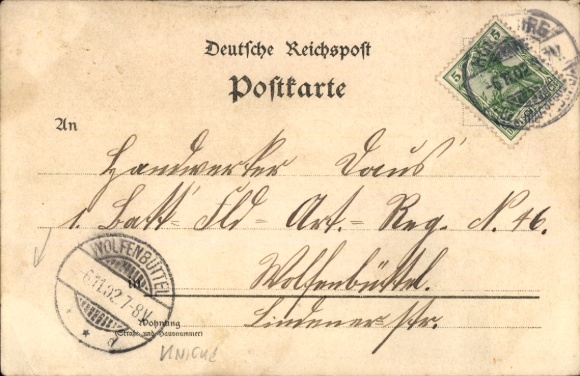 Deutsche Reichspost
Postkarte
An
Handwerker Daus
1. Batt. Fld-Art-Reg. N. 46.
in Wolfenbüttel.
Lindenerstr.
Wohnung
(Straße und Hausnummer)
WOLFENBÜTTEL
6.11.02.7-8V.
* * d
5 5